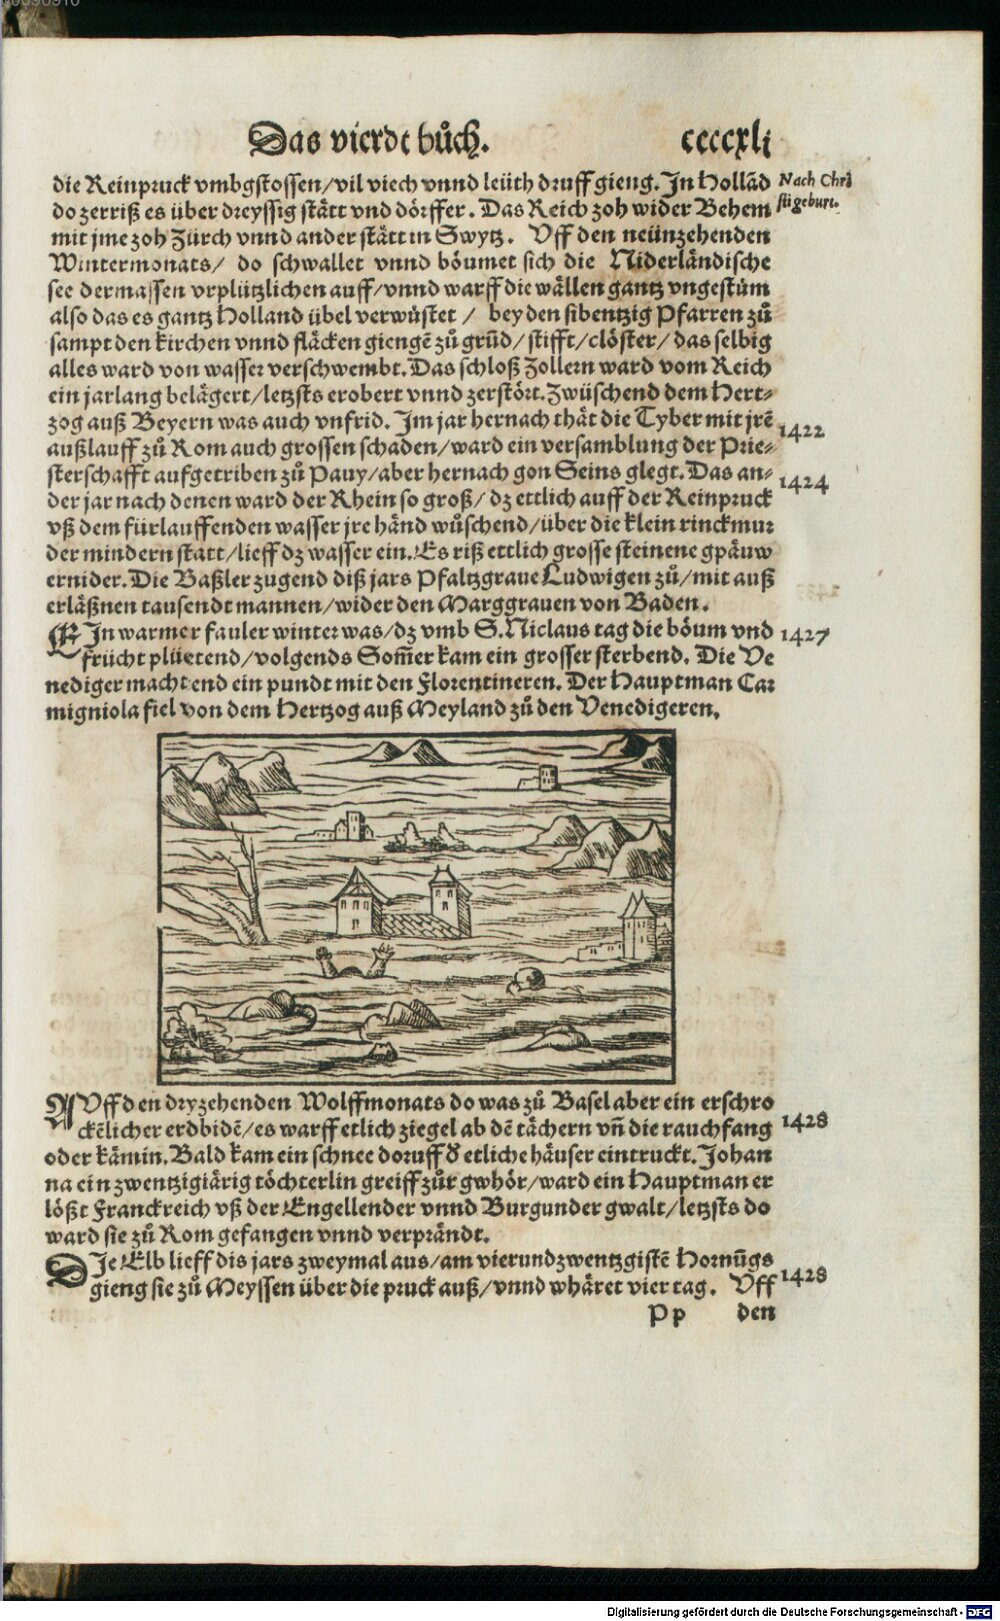 Das vierdt bůch. ccccxli
die Reinpruck vmbgstossen/vil viech vnnd leüth druff gieng. In Hollãd
Nach Chri
do zerriß es über dreyssig stätt vnd dörffer. Das Reich zoh wider Behem
sti geburt.
mit jme zoh Zürch vnnd ander stätt in Swytz. Vff den neünzehenden
Wintermonats/ do schwallet vnnd böumet sich die Niderländische
see dermassen vrplützlichen auff/vnnd warff die wällen gantz vngestüm
also das es gantz Holland übel verwüstet / bey den sibentzig Pfarren zů
sampt den kirchen vnnd fläcken giengẽ zů grũd/stifft/clöster/das selbig
alles ward von wasser verschwembt. Das schloß Zollern ward vom Reich
ein jarlang belägert/letzsts erobert vnnd zerstört. Zwüschend dem Hert-
zog auß Beyern was auch vnfrid. Im jar hernach thät die Tyber mit jrẽ
1422
außlauff zů Rom auch grossen schaden/ward ein versamblung der Prie-
sterschafft aufgetriben zů Pauy/aber hernach gon Seins glegt. Das an-
1424
der jar nach denen ward der Rhein so groß/dz ettlich auff der Reinpruck
vß dem fürlauffenden wasser jre händ wůschend/über die klein rinckmur
der mindern statt/lieff dz wasser ein. Es riß ettlich grosse steinene gpäuw
ernider. Die Baßler zugend diß jars Pfaltzgraue Ludwigen zů/mit auß
erläßnen tausendt mannen/wider den Marggrauen von Baden.
EIn warmer fauler winter was/dz vmb S. Niclaus tag die böum vnd
1427
frücht plüetend/volgends Som̃er kam ein grosser sterbend. Die Ve
nediger machtend ein pundt mit den Florentineren. Der Hauptman Car
migniola fiel von dem Hertzog auß Meyland zů den Venedigeren.
AVff den dryzehenden Wolffmonats do was zů Basel aber ein erschro
1428
ckẽlicher erdbidẽ/es warff etlich ziegel ab dẽ tächern vñ die rauchfang
oder kämin. Bald kam ein schnee doruff d' etliche häuser eintruckt. Johan
na ein zwentzigiärig töchterlin greiff zůr gwhör/ward ein Hauptman er
lößt Franckreich vß der Engellender vnnd Burgunder gwalt/letzsts do
ward sie zů Rom gefangen vnnd verprändt.
DIe Elb lieff dis jars zweymal aus/am vierundzwentzgistẽ Hornũgs
1428
gieng sie zů Meyssen über die pruck auß/vnnd whäret vier tag. Vff
Pp den
Digitalisierung gefördert durch die Deutsche Forschungsgemeinschaft - DFG